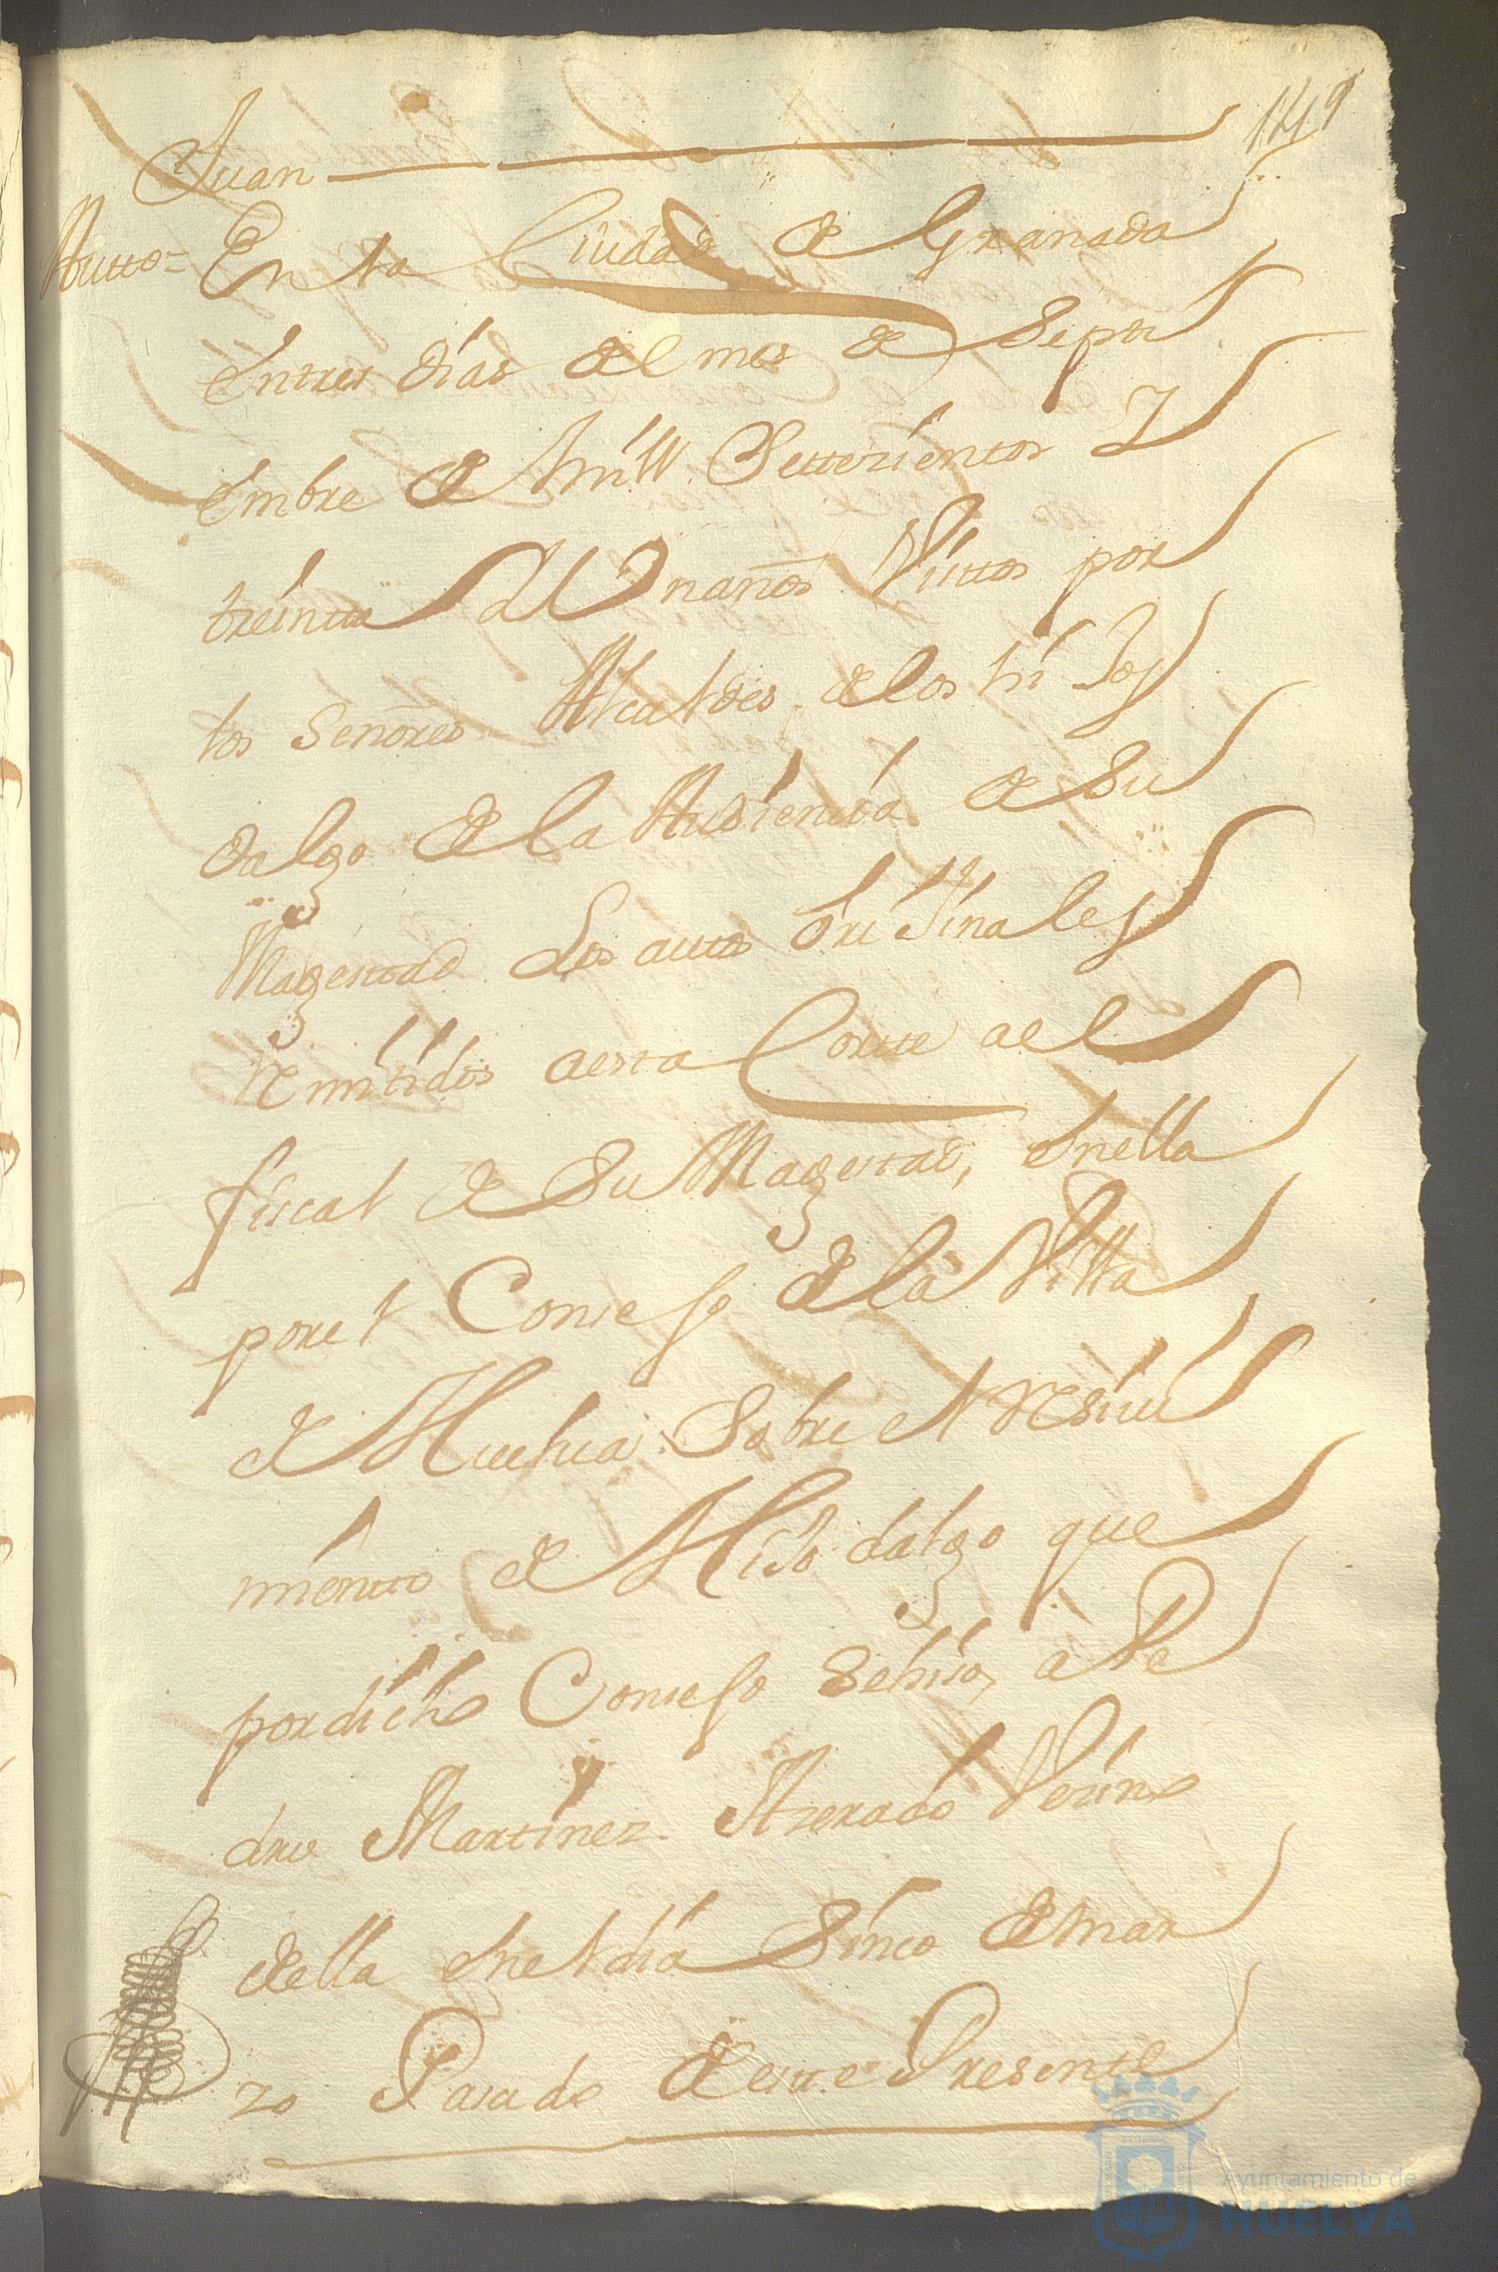 149
Juan
Autto= En la Ciudad de Granada
entres dias del mes de Septi
embre de mill Settezientos I
treintta I Un años Vistos por
los Señores Alcaldes delos hi Jos
dalgo de la Audiencia de Su
Magestad Los autos Orijinales
Remitidos a esta Cortte a el
fiscal de Su Magestad, enella
por el Consejo de la Villa
de Huelva Sobre el Resivi
mientto de Hijo dalgo que
por dicho Consejo Sehiso, a Pe
dro Martinez Azerado Vezino
della enel dia Sinco de mar
zo Pasado deeste Presente
Ayuntamiento de
HUELVA